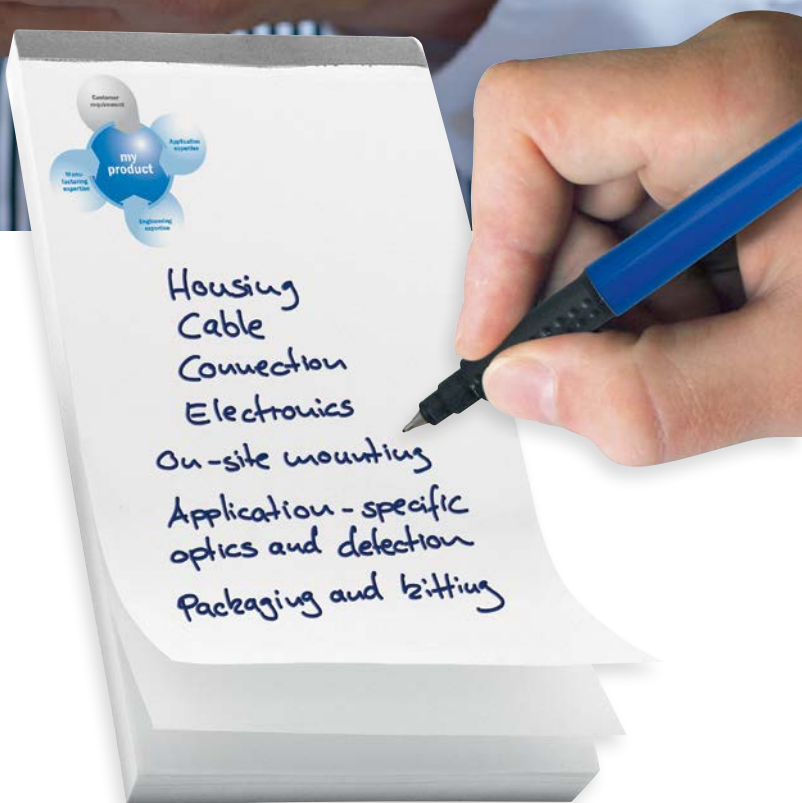 Customer
requirement
Application
expertise
my
product
Manu-
facturing
expertise
Engineering
expertise
Housing
Cable
Connection
Electronics
On-site mounting
Application-specific
optics and detection
Packaging and kitting